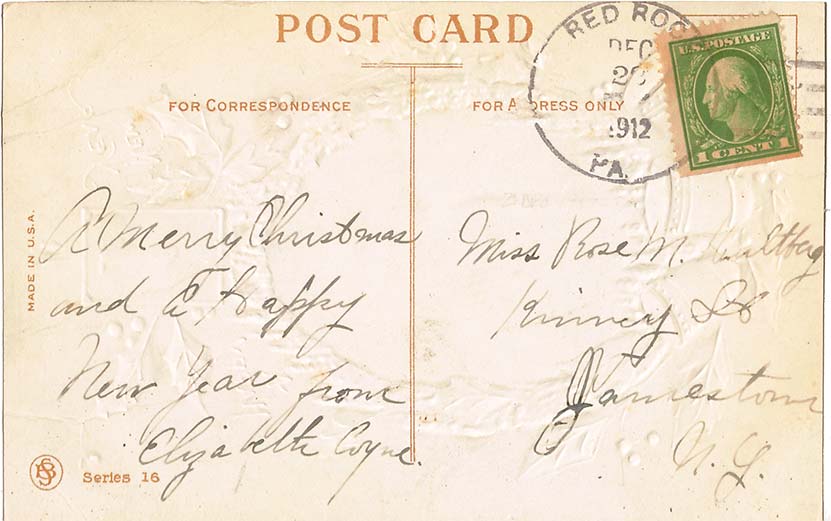 POST CARD
RED ROC
DEC
28
1912
PA.
U.S. POSTAGE
1 CENT 1
FOR CORRESPONDENCE
FOR ADDRESS ONLY
MADE IN U.S.A.
A Merry Christmas
and A Happy
New Year from
Elizabeth Coyne.
Miss Rose M.
Kinney St
Jamestown
N.Y.
Series 16